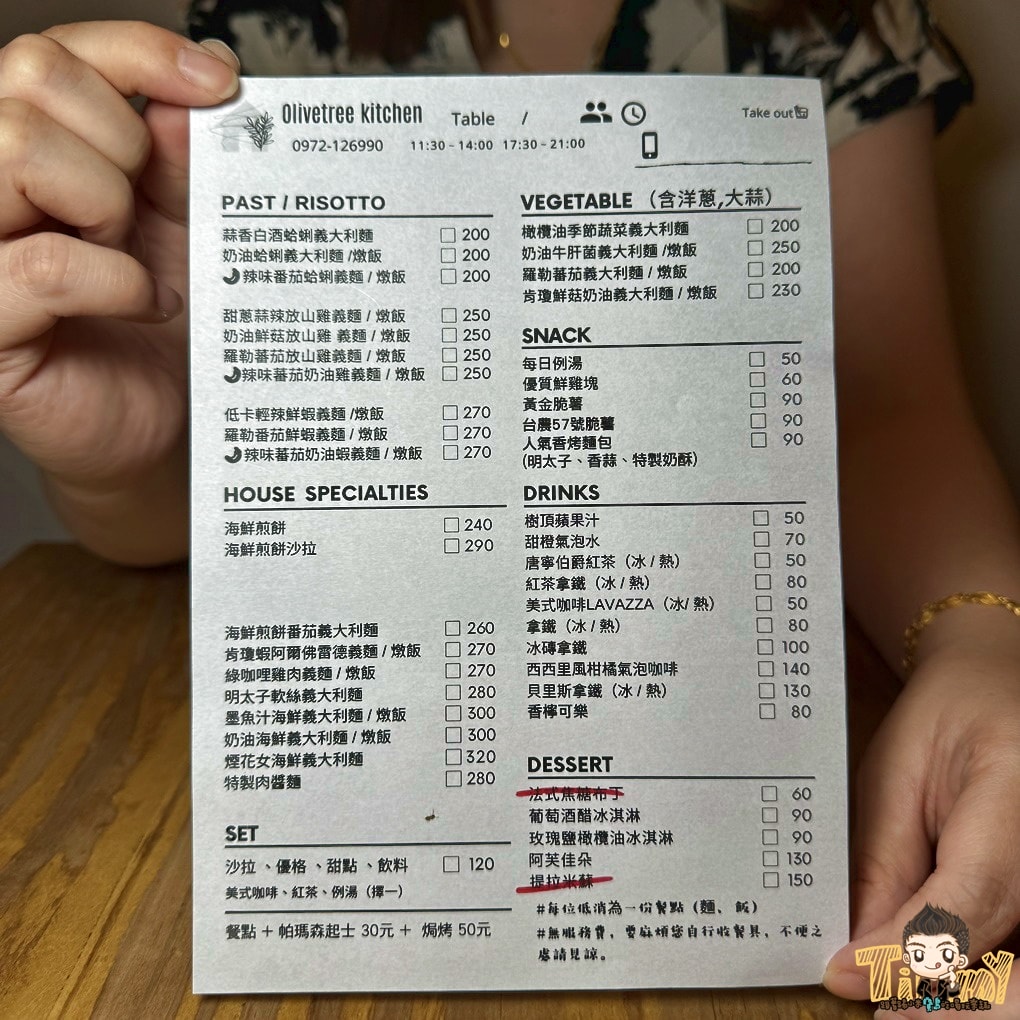 Olivetree kitchen Table / Take out
0972-126990 11:30 - 14:00 17:30 - 21:00
PAST / RISOTTO
蒜香白酒蛤蜊義大利麵 200
奶油蛤蜊義大利麵 /燉飯 200
辣味番茄蛤蜊義麵 / 燉飯 200
甜蔥蒜辣放山雞義麵 / 燉飯 250
奶油鮮菇放山雞 義麵 / 燉飯 250
羅勒蕃茄放山雞義麵 / 燉飯 250
辣味蕃茄奶油雞義麵 / 燉飯 250
低卡輕辣鮮蝦義麵 /燉飯 270
羅勒番茄鮮蝦義麵 / 燉飯 270
辣味蕃茄奶油蝦義麵 / 燉飯 270
HOUSE SPECIALTIES
海鮮煎餅 240
海鮮煎餅沙拉 290
海鮮煎餅番茄義大利麵 260
肯瓊蝦阿爾佛雷德義麵 / 燉飯 270
綠咖哩雞肉義麵 / 燉飯 270
明太子軟絲義大利麵 280
墨魚汁海鮮義大利麵 / 燉飯 300
奶油海鮮義大利麵 / 燉飯 300
煙花女海鮮義大利麵 320
特製肉醬麵 280
SET
沙拉 、優格 、甜點 、飲料 120
美式咖啡、紅茶、例湯（擇一）
餐點 + 帕瑪森起士 30元 + 焗烤 50元
VEGETABLE （含洋蔥,大蒜）
橄欖油季節蔬菜義大利麵 200
奶油牛肝菌義大利麵 /燉飯 250
羅勒蕃茄義大利麵 / 燉飯 200
肯瓊鮮菇奶油義大利麵 / 燉飯 230
SNACK
每日例湯 50
優質鮮雞塊 60
黃金脆薯 90
台農57號脆薯 90
人氣香烤麵包 90
(明太子、香蒜、特製奶酥)
DRINKS
樹頂蘋果汁 50
甜橙氣泡水 70
唐寧伯爵紅茶（冰 / 熱） 50
紅茶拿鐵（冰 / 熱） 80
美式咖啡LAVAZZA（冰/ 熱） 50
拿鐵（冰 / 熱） 80
冰磚拿鐵 100
西西里風柑橘氣泡咖啡 140
貝里斯拿鐵（冰 / 熱） 130
香檸可樂 80
DESSERT
法式焦糖布丁 60
葡萄酒醋冰淇淋 90
玫瑰鹽橄欖油冰淇淋 90
阿芙佳朵 130
提拉米蘇 150
#每位低消為一份餐點（麵、飯）
#無服務費，要麻煩您自行收餐具，不便之
處請見諒。